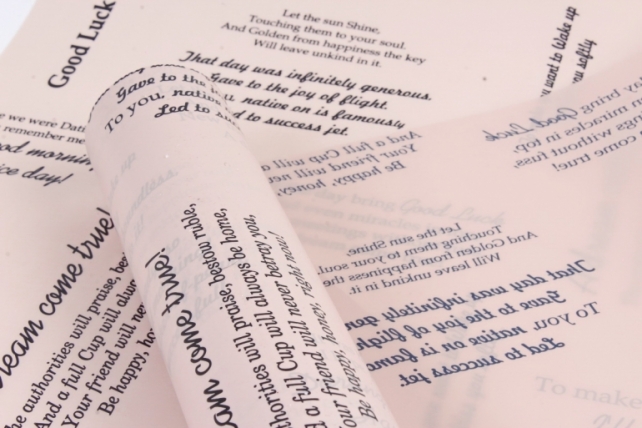 Good Luck
Let the sun Shine,
Touching them to your soul.
And Golden from happiness the key
Will leave unkind in it.
That day was infinitely generous.
Gave to the joy of flight.
To you, native on is famously
Led to success jet.
want to Wake up
you softly
we were
remember me
morning,
day!
Gave to the
To you, native
Led to
come true!
the authorities will praise,
And a full Cup will
Your friend will
Be happy,
come true!
authorities will praise, bestow ruble,
a full Cup will always be home,
your friend will never betray you,
Be happy, honey, right now!
And a full Cup will
Your friend will
Be happy, honey,
bring Good Luck
miracles in top
without fuss.
come true!
day bring Good Luck
even miracles
Let the sun Shine,
Touching them to your soul.
And Golden from happiness the
Will leave unkind in it.
That day was infinitely
Gave to the joy of
To you, native on is
Led to success jet.
To make